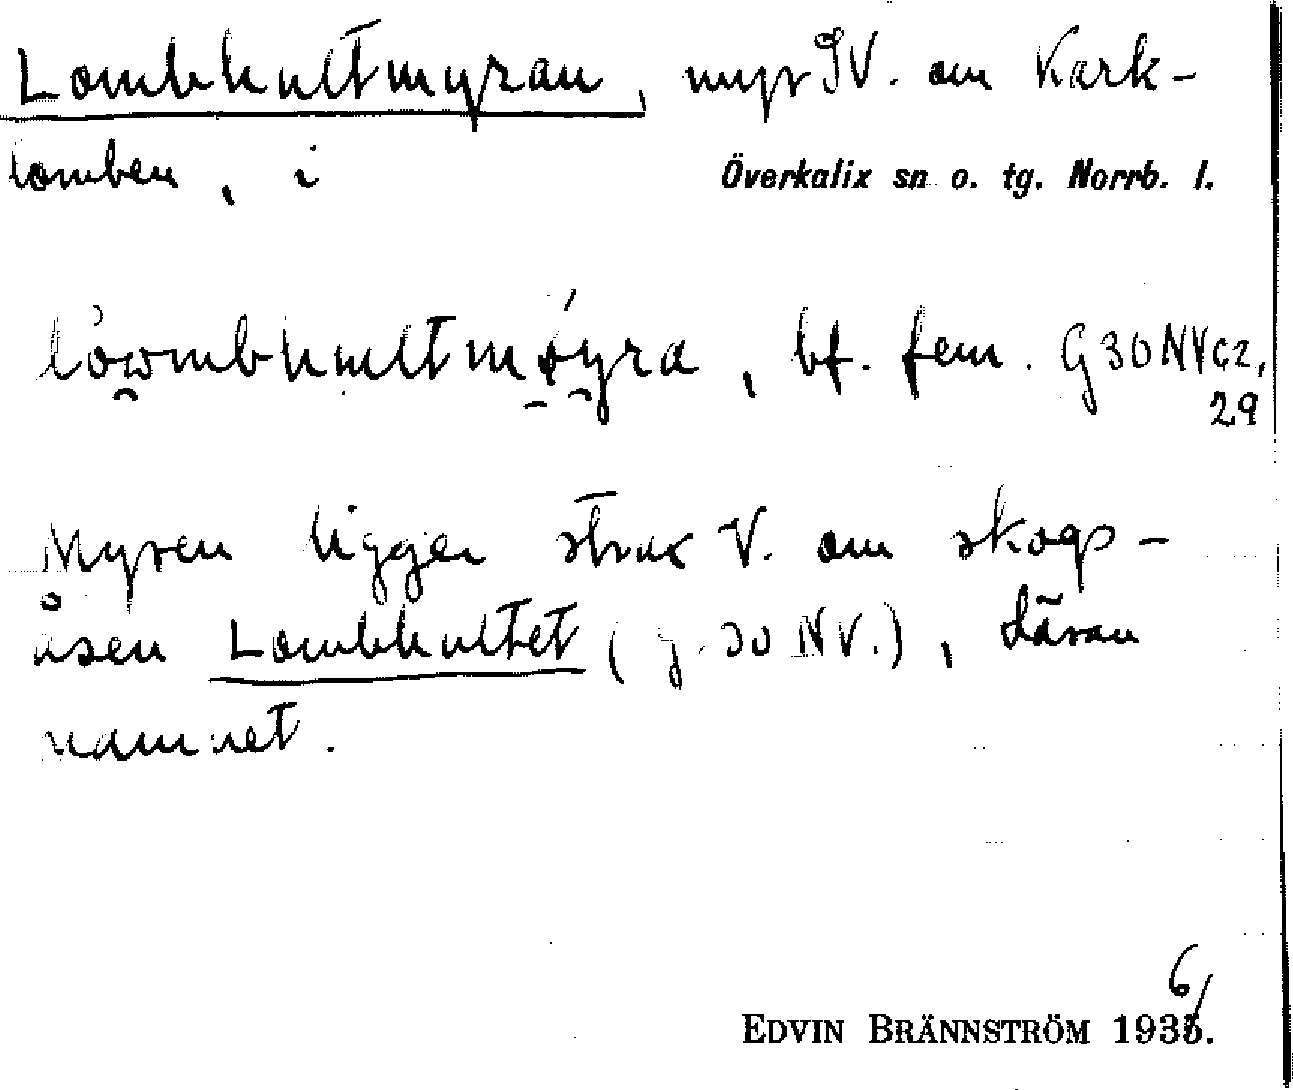 Lombhultmyran, myr SV. om Kark-
lomben, i Överkalix sn o. tg. Norrb. l.
bf. fem. G 30 NV c2,
29
Myren ligger strax V. om skogs-
åsen Lombhultet (g. 30 NV.), därav
namnet.
6
EDVIN BRÄNNSTRÖM 1935.